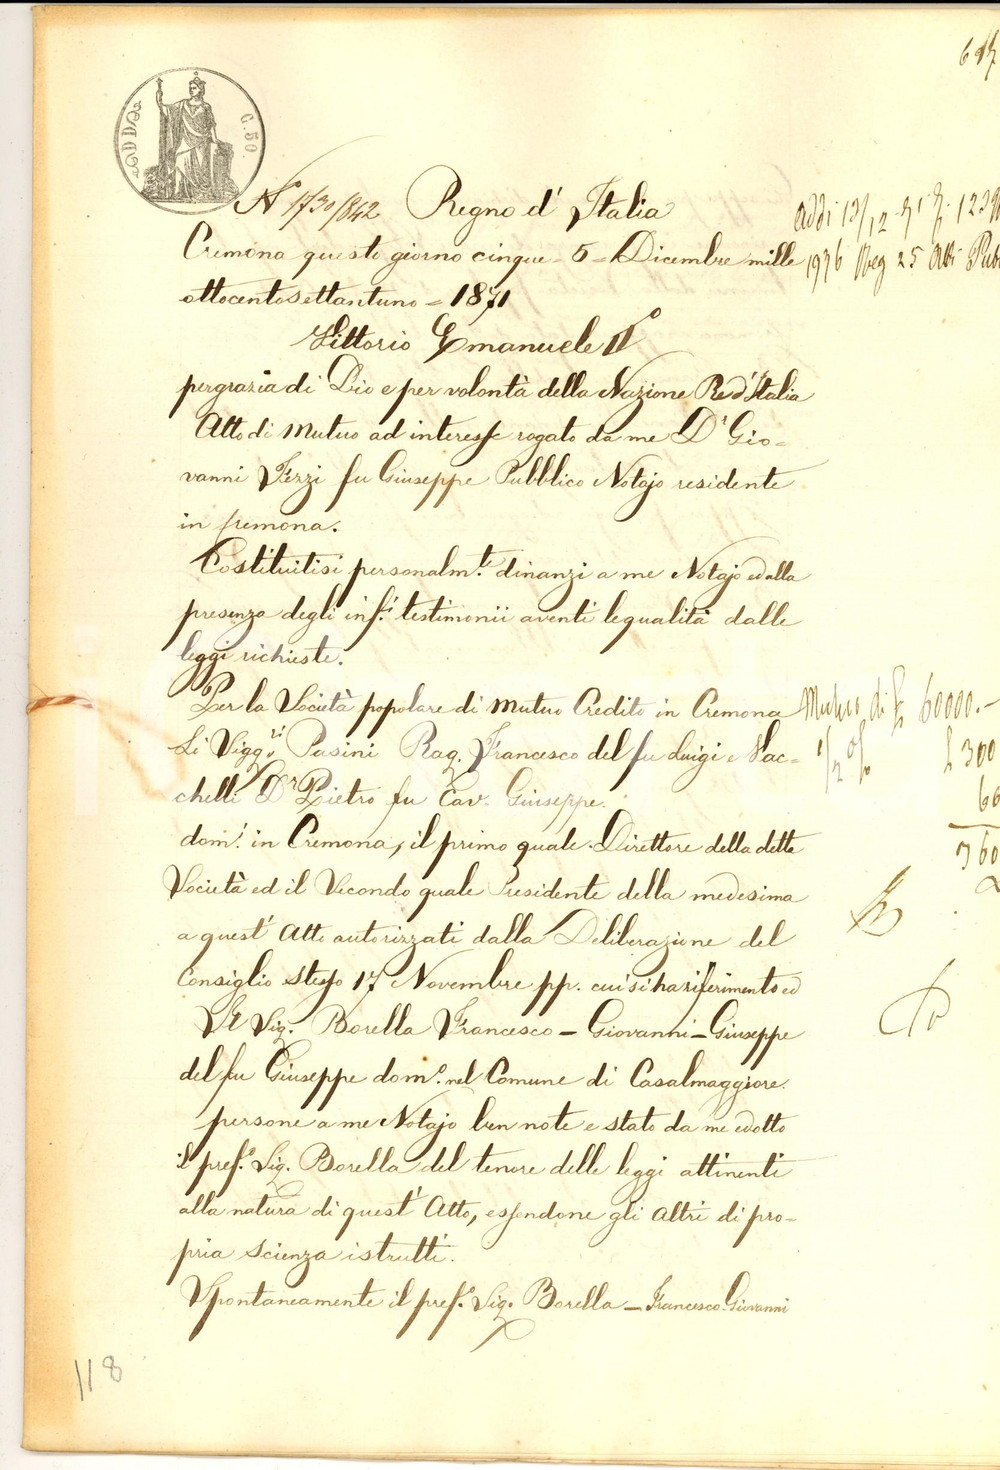 617
C. 50
N° 1730/842 Regno d' Italia
Addì 13/12 71
Cremona questo giorno cinque = 5 = Dicembre mille
1936 Reg 25 Atti Pub
ottocentosettantuno = 1871
Vittorio Emanuele II°
per grazia di Dio e per volontà della Nazione Re d'Italia
Atto di Mutuo ad interesse rogato da me Dr Gio=
vanni Fezzi fu Giuseppe Pubblico Notajo residente
in Cremona.
Costituitisi personalm.te dinanzi a me Notajo ed alla
presenza degli inf.i testimonii aventi le qualità dalle
leggi richieste.
Per la Società popolare di Mutuo Credito in Cremona
Mutuo di £ 60000.-
Li Sigg.ri Pasini Rag. Francesco del fu Luigi e Vac=
1/2 %
£ 300
chelli Dr Pietro fu Cav. Giuseppe.
60
dom.i in Cremona, il primo quale Direttore della detta
360
Società ed il Secondo quale Presidente della medesima
a quest' Atto autorizzati dalla Deliberazione del
Consiglio stesso 17 Novembre pp. cui si ha riferimento ed
Il Sig. Borella Francesco - Giovanni - Giuseppe
del fu Giuseppe dom.o nel Comune di Casalmaggiore.
persone a me Notajo ben note e stato da me edotto
il pref.o Sig. Borella del tenore delle leggi attinenti
alla natura di quest' Atto, essendone gli altri di pro-
pria scienza istrutti.
Spontaneamente il pref.o Sig. Borella - Francesco Giovanni
118